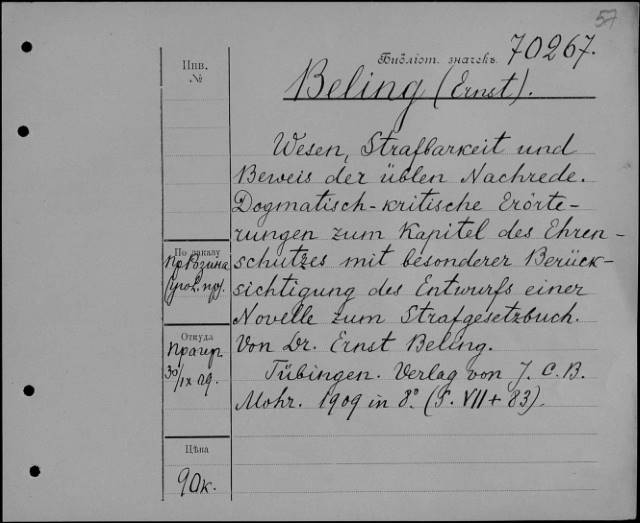 57
Библіот. значекъ 70267.
Beling (Ernst).
Инв.
№
Wesen, Strafbarkeit und
Beweis der üblen Nachrede.
Dogmatisch-kritische Erörte-
rungen zum Kapitel des Ehren-
schutzes mit besonderer Berück-
sichtigung des Entwurfs einer
Novelle zum Strafgesetzbuch.
Von Dr. Ernst Beling.
Tübingen. Verlag von J. C. B.
Mohr. 1909 in 8° (S. VII + 83).
По заказу
пр. Розина
Откуда
30/IX 09.
Цѣна
90к.